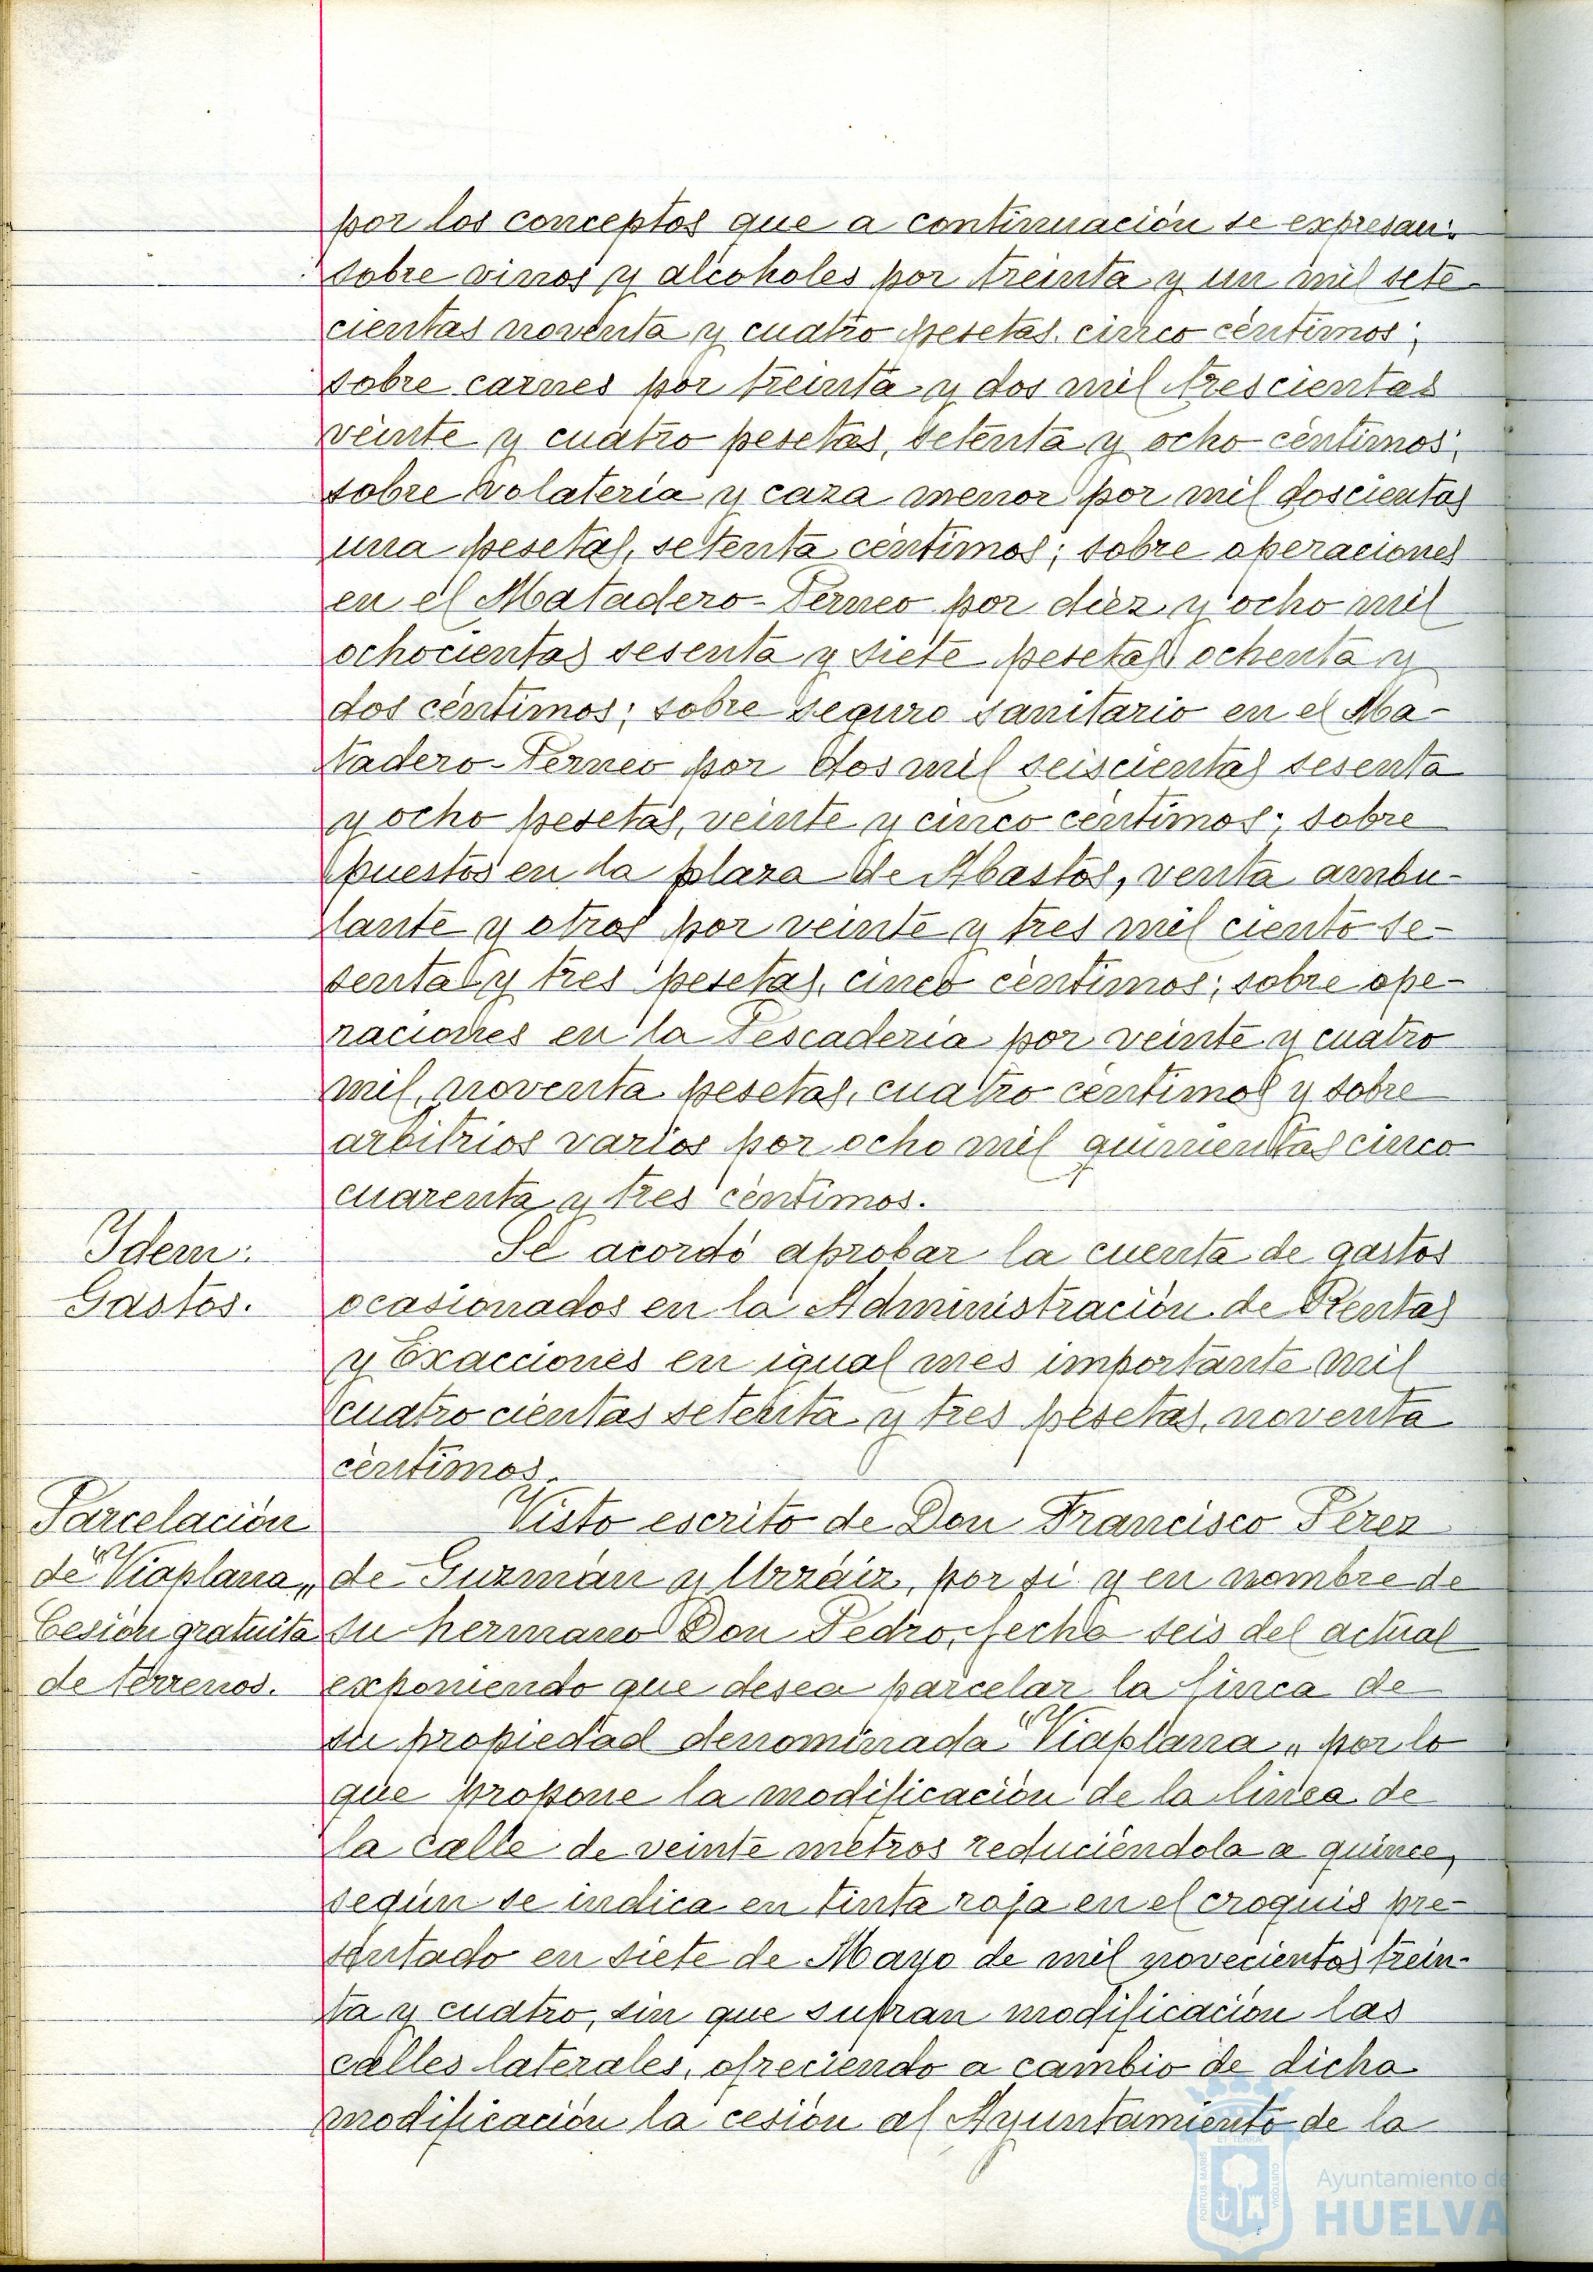 por los conceptos que a continuación se expresan:
sobre vinos y alcoholes por treinta y un mil sete-
cientas noventa y cuatro pesetas, cinco céntimos;
sobre carnes por treinta y dos mil trescientas
veinte y cuatro pesetas, setenta y ocho céntimos;
sobre volatería y caza menor por mil doscientas
una pesetas, setenta céntimos; sobre operaciones
en el Matadero-Perneo por diez y ocho mil
ochocientas sesenta y siete pesetas ochenta y
dos céntimos; sobre seguro sanitario en el Ma-
tadero-Perneo por dos mil seiscientas sesenta
y ocho pesetas, veinte y cinco céntimos; sobre
puestos en la plaza de Abastos, venta ambu-
lante y otros por veinte y tres mil ciento se-
senta y tres pesetas, cinco céntimos; sobre ope-
raciones en la Pescadería por veinte y cuatro
mil, noventa pesetas, cuatro céntimos y sobre
arbitrios varios por ocho mil quinientas cinco
cuarenta y tres céntimos.
Idem:
Gastos.
Se acordó aprobar la cuenta de gastos
ocasionados en la Administración de Rentas
y Exacciones en igual mes importante mil
cuatrocientas setenta y tres pesetas, noventa
céntimos.
Parcelación
de "Viaplana"
Cesión gratuita
de terrenos.
Visto escrito de Don Francisco Perez
de Guzmán y Urzáiz, por sí y en nombre de
su hermano Don Pedro, fecha seis del actual
exponiendo que desea parcelar la finca de
su propiedad denominada "Viaplana" por lo
que propone la modificación de la línea de
la calle de veinte metros reduciéndola a quince,
según se indica en tinta roja en el croquis pre-
sentado en siete de Mayo de mil novecientos trein-
ta y cuatro, sin que sufran modificación las
calles laterales, ofreciendo a cambio de dicha
modificación la cesión al Ayuntamiento de la
Ayuntamiento de
HUELVA